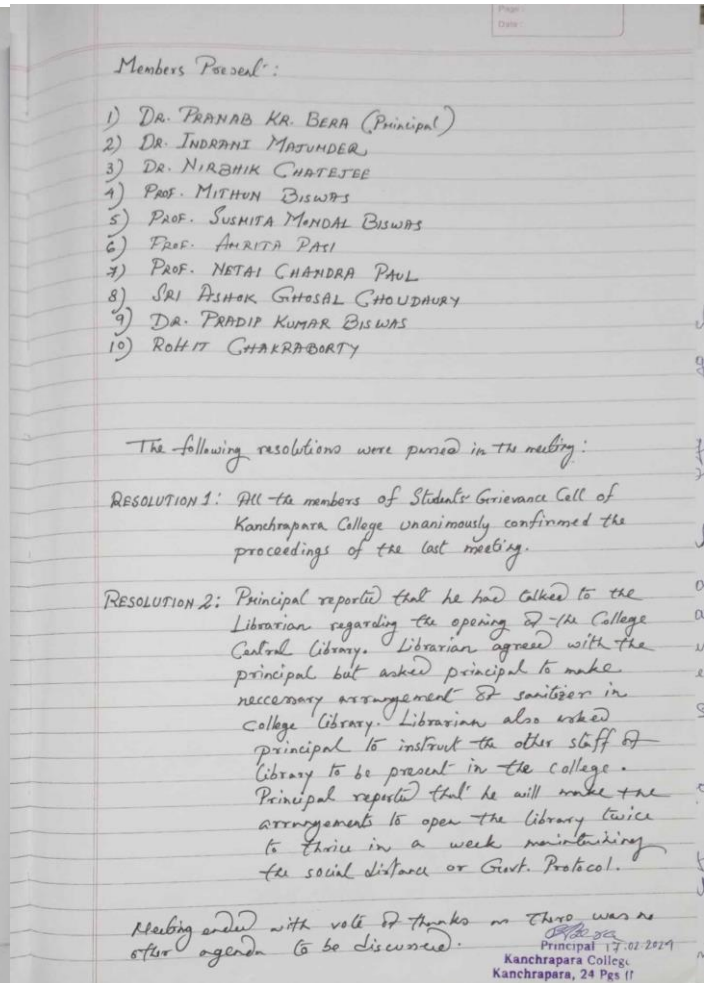 Page:
Date:
Members Present:
1) DR. PRANAB KR. BERA (Principal)
2) DR. INDRANI MAJUMDER
3) DR. NIRBHIK CHATEJEE
4) PROF. MITHUN BISWAS
5) PROF. SUSMITA MONDAL BISWAS
6) PROF. AMRITA PASI
7) PROF. NETAI CHANDRA PAUL
8) SRI ASHOK GHOSAL CHOUDHURY
9) DR. PRADIP KUMAR BISWAS
10) ROHIT CHAKRABORTY
The following resolutions were passed in the meeting:
RESOLUTION 1: All the members of Students Grievance Cell of
Kanchrapara College unanimously confirmed the
proceedings of the last meeting.
RESOLUTION 2: Principal reported that he had talked to the
Librarian regarding the opening of the College
Central Library. Librarian agreed with the
principal but asked principal to make
neccessary arrangement of sanitizer in
College library. Librarian also asked
principal to instruct the other staff of
library to be present in the college.
Principal reported that he will make the
arrangements to open the library twice
to thrice in a week maintaining
the social distance or Govt. Protocol.
Meeting ended with vote of thanks as there was no
other agenda to be discussed.
Principal 17.02.2024
Kanchrapara College
Kanchrapara, 24 Pgs